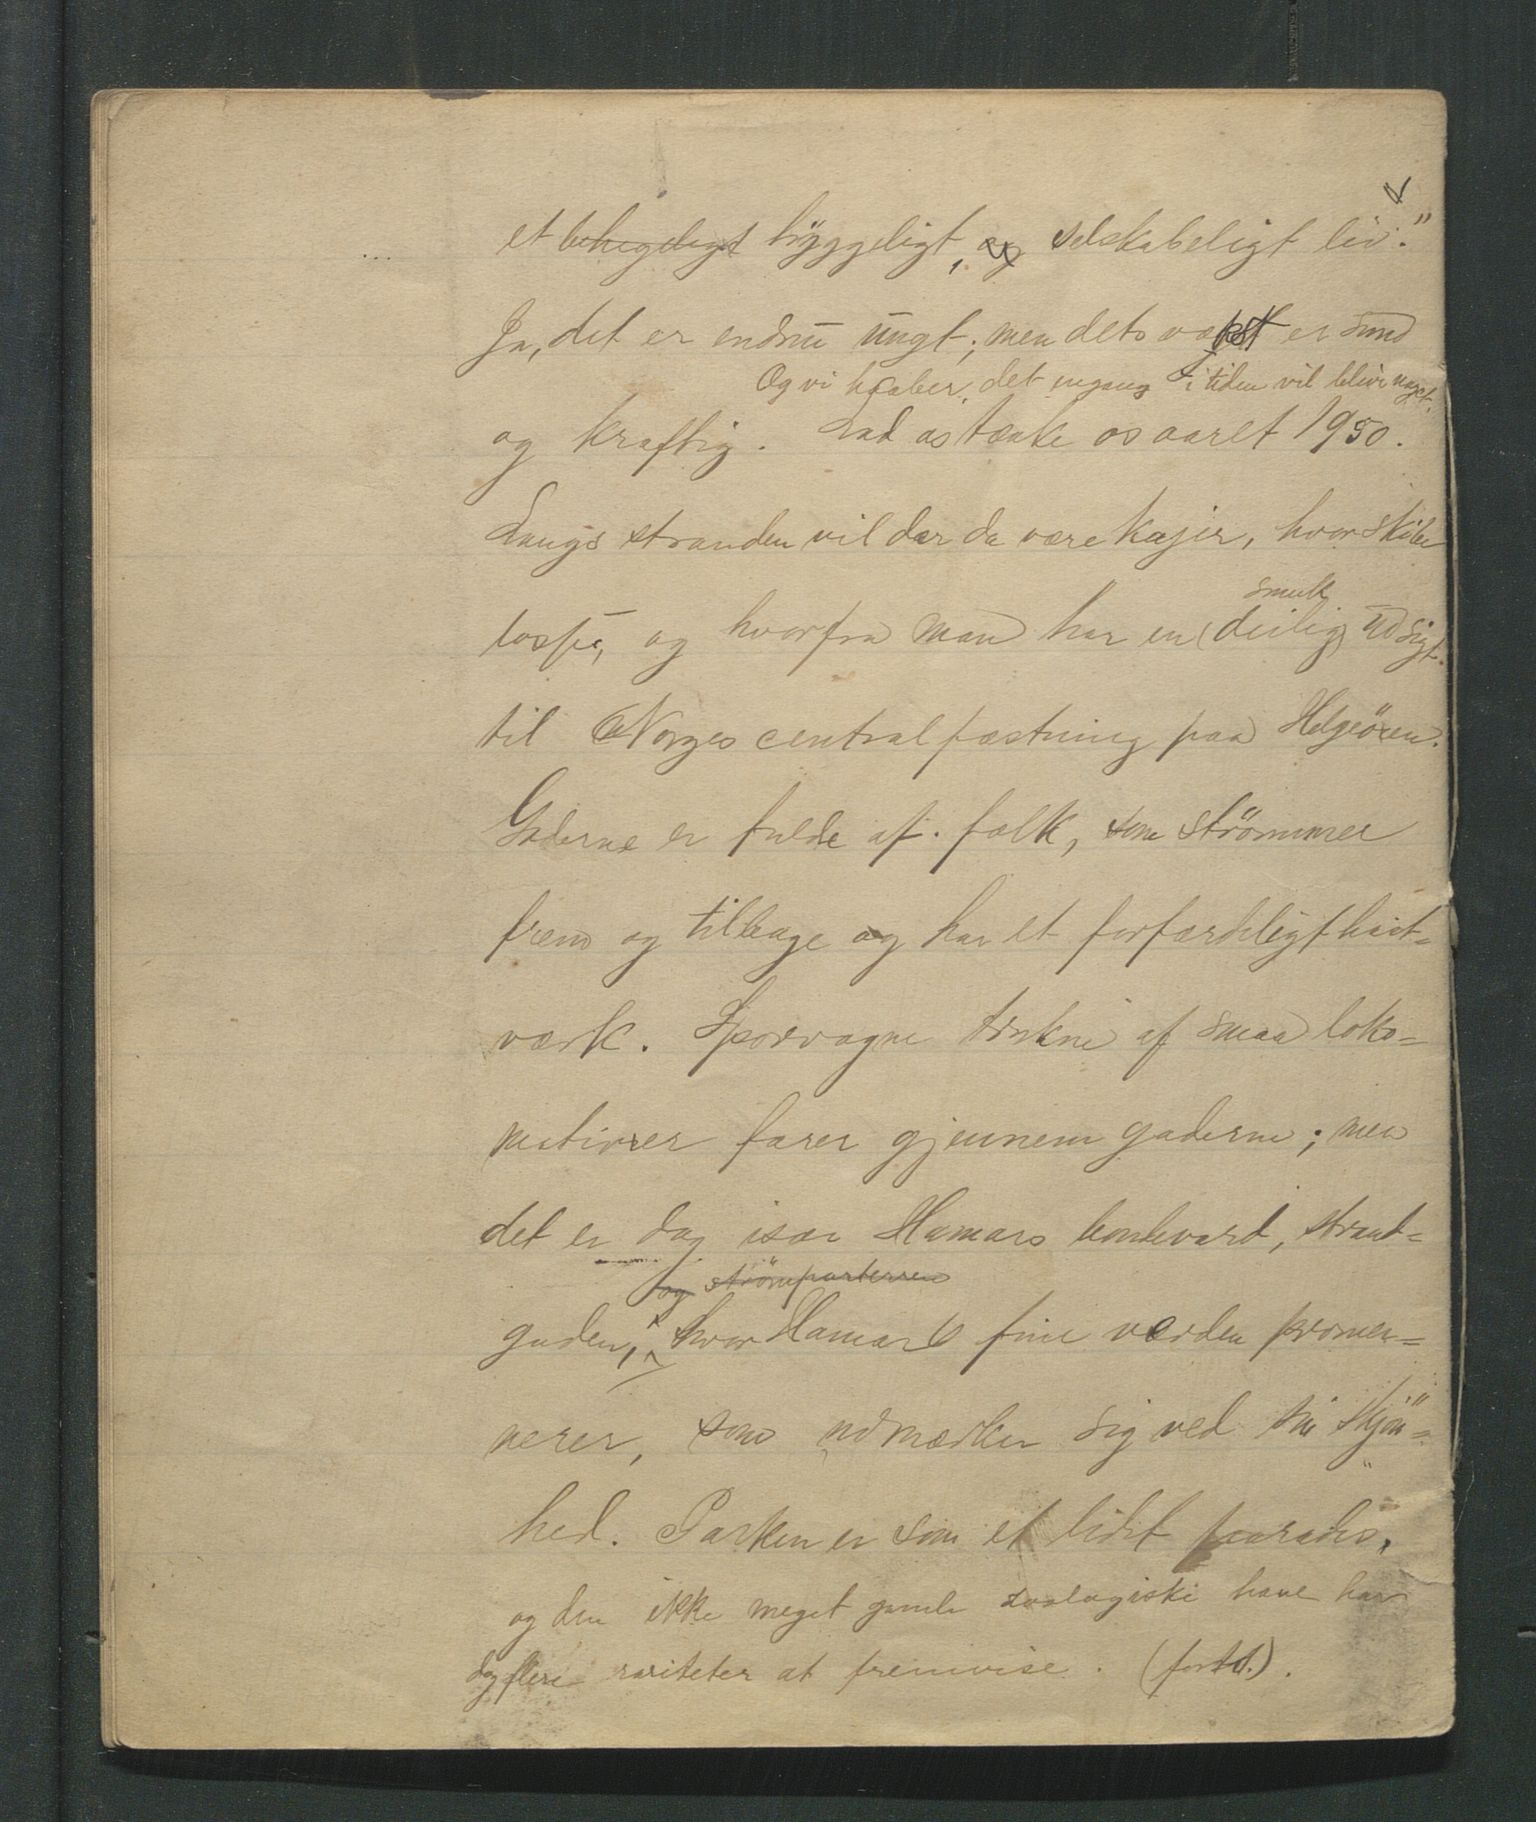 et behageligt hyggeligt, og selskabeligt liv."
Ja, det er endnu ungt; men dets væxt er sund
Og vi haaber, det engang i tiden vil blive noget.
og kraftig. Lad os tænke os aaret 1950.
Langs stranden vil der da være kajer, hvor skibe
smuk
losse, og hvorfra man har en (deilig) udsigt
til Norges centralfæstning paa Helgeöen.
Gaderne er fulde af folk, som strömmer
frem og tilbage og har et forfærdeligt hast=
værk. Sporvogne trukne af smaa loko=
motiver farer gjennem gaderne; men
det er dog især Hamars boulevard, strand=
og strömparterren
gaden, hvor Hamars fine verden prome=
nerer, som udmærker sig ved sin skjön=
hed. Parken er som et lidet paradis,
og den ikke meget gamle zoologiske have har
dog flere rariteter at fremvise. (forts.).